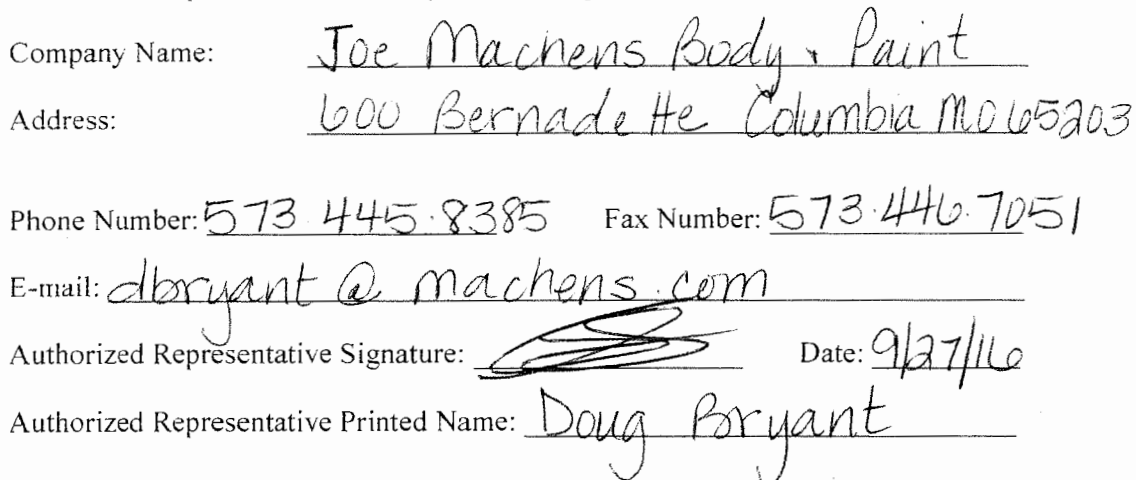 Company Name: Joe Machens Body & Paint
Address: 600 Bernadette Columbia MO 65203
Phone Number: 573.445.8385 Fax Number: 573.446.7051
E-mail: dbryant@machens.com
Authorized Representative Signature: Date: 9/27/16
Authorized Representative Printed Name: Doug Bryant